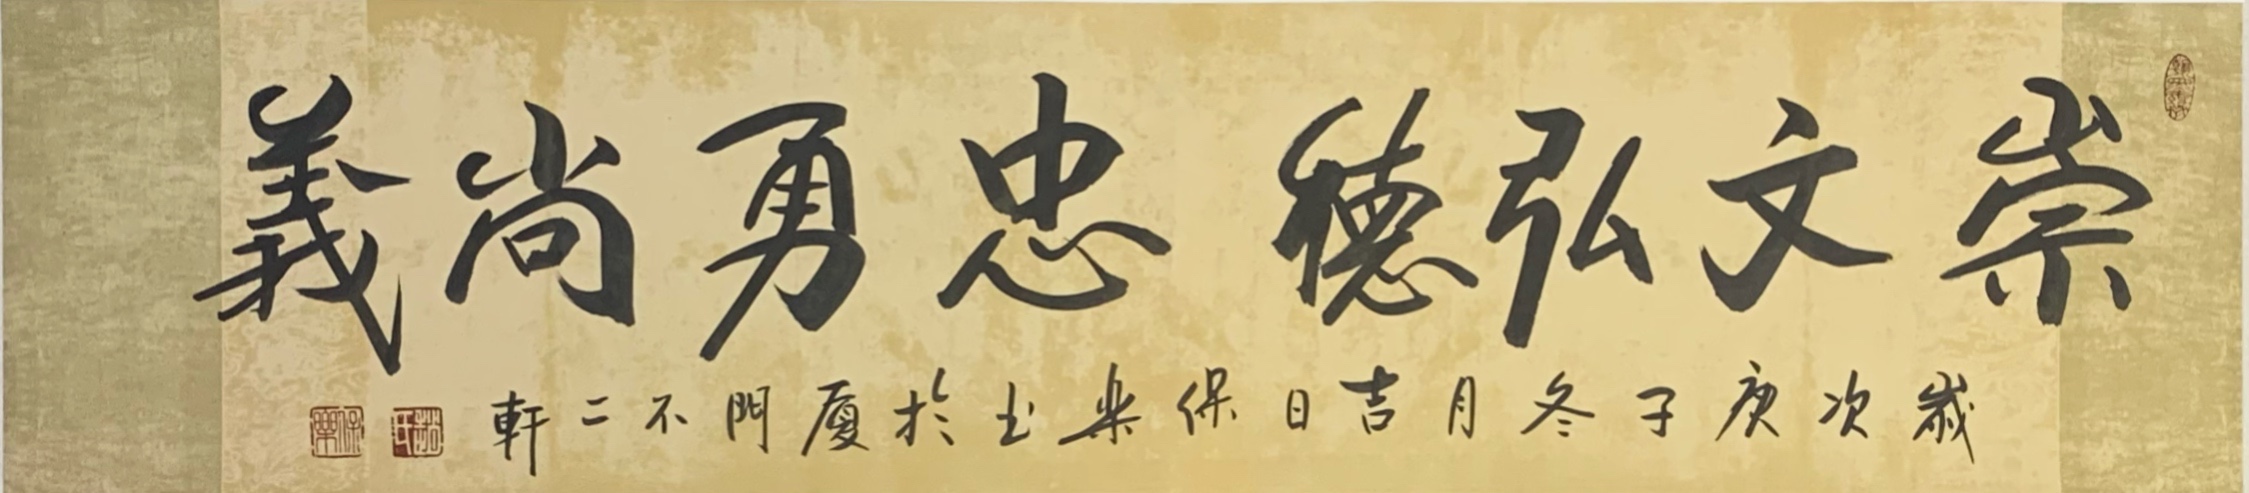 崇文弘德忠勇尚義
歲次庚子冬月吉日保樂书於廈門不二軒
保樂